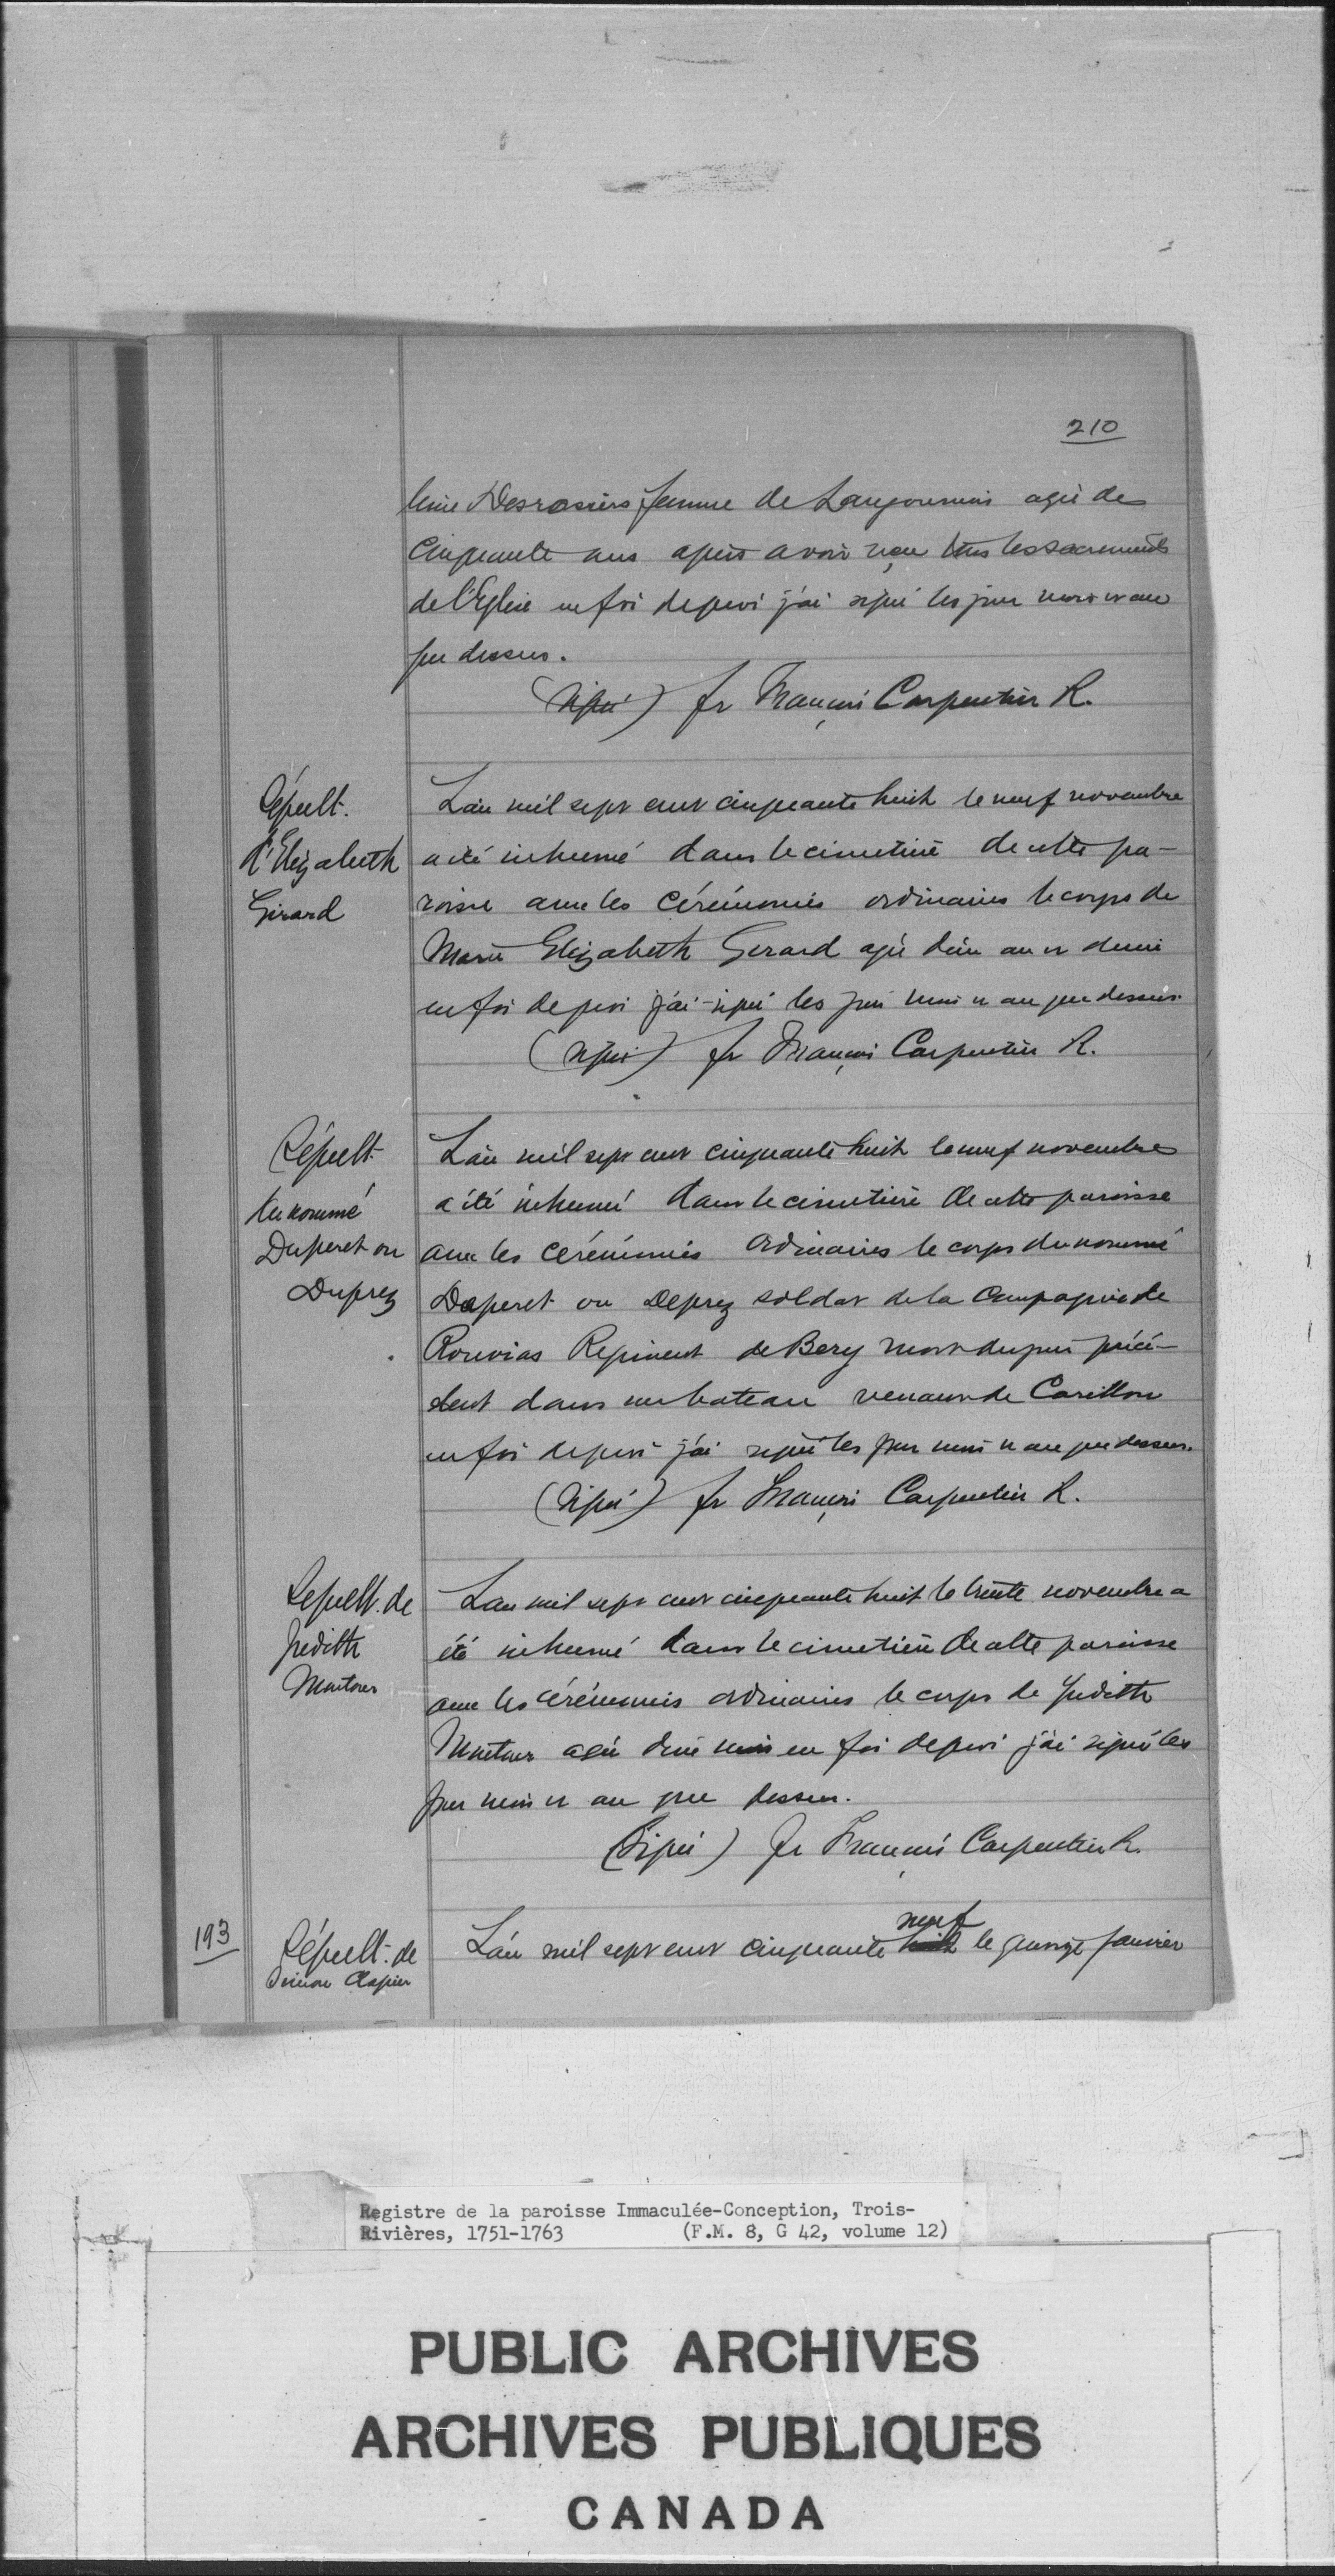 210
leine Desrosiers femme de Langoumois agée de
cinquante ans après avoir reçu tous les sacrements
de l'Eglise en foi de quoi j'ai signé les jour mois et an
que dessus.
(Signé) fr François Carpentier R.
Sépult.
d'Elizabeth
Girard
L'an mil sept cent cinquante huit le neuf novembre
a été inhumé dans le cimetière de cette pa-
roisse avec les cérémonies ordinaires le corps de
Marie Elizabeth Gerard agée d'un an et demi
en foi de quoi j'ai signé les jour mois et an que dessus.
(Signé) fr François Carpentier R.
Sépult.
du nommé
Duperet ou
Duprez
L'an mil sept cent cinquante huit le neuf novembre
a été inhumé dans le cimetière de cette paroisse
avec les cérémonies ordinaires le corps du nommé
Duperet ou Deprez soldat de la Compagnie de
Rouvias Regiment de Bery mort du jour précé-
dent dans un bateau venant de Carillon
en foi de quoi j'ai signé les jour mois et an que dessus.
(Signé) fr François Carpentier R.
Sepult. de
Judith
L'an mil sept cent cinquante huit le trente novembre a
été inhumé dans le cimetière de cette paroisse
avec les cérémonies ordinaires le corps de Judith
agée d'un mois en foi de quoi j'ai signé les
jour mois et an que dessus.
(Signé) fr François Carpentier R.
193
Sépult. de
Simon Clapier
neuf
L'an mil sept cent cinquante huit le quinze janvier
Registre de la paroisse Immaculée-Conception, Trois-
Rivières, 1751-1763 (F.M. 8, G 42, volume 12)
PUBLIC ARCHIVES
ARCHIVES PUBLIQUES
CANADA